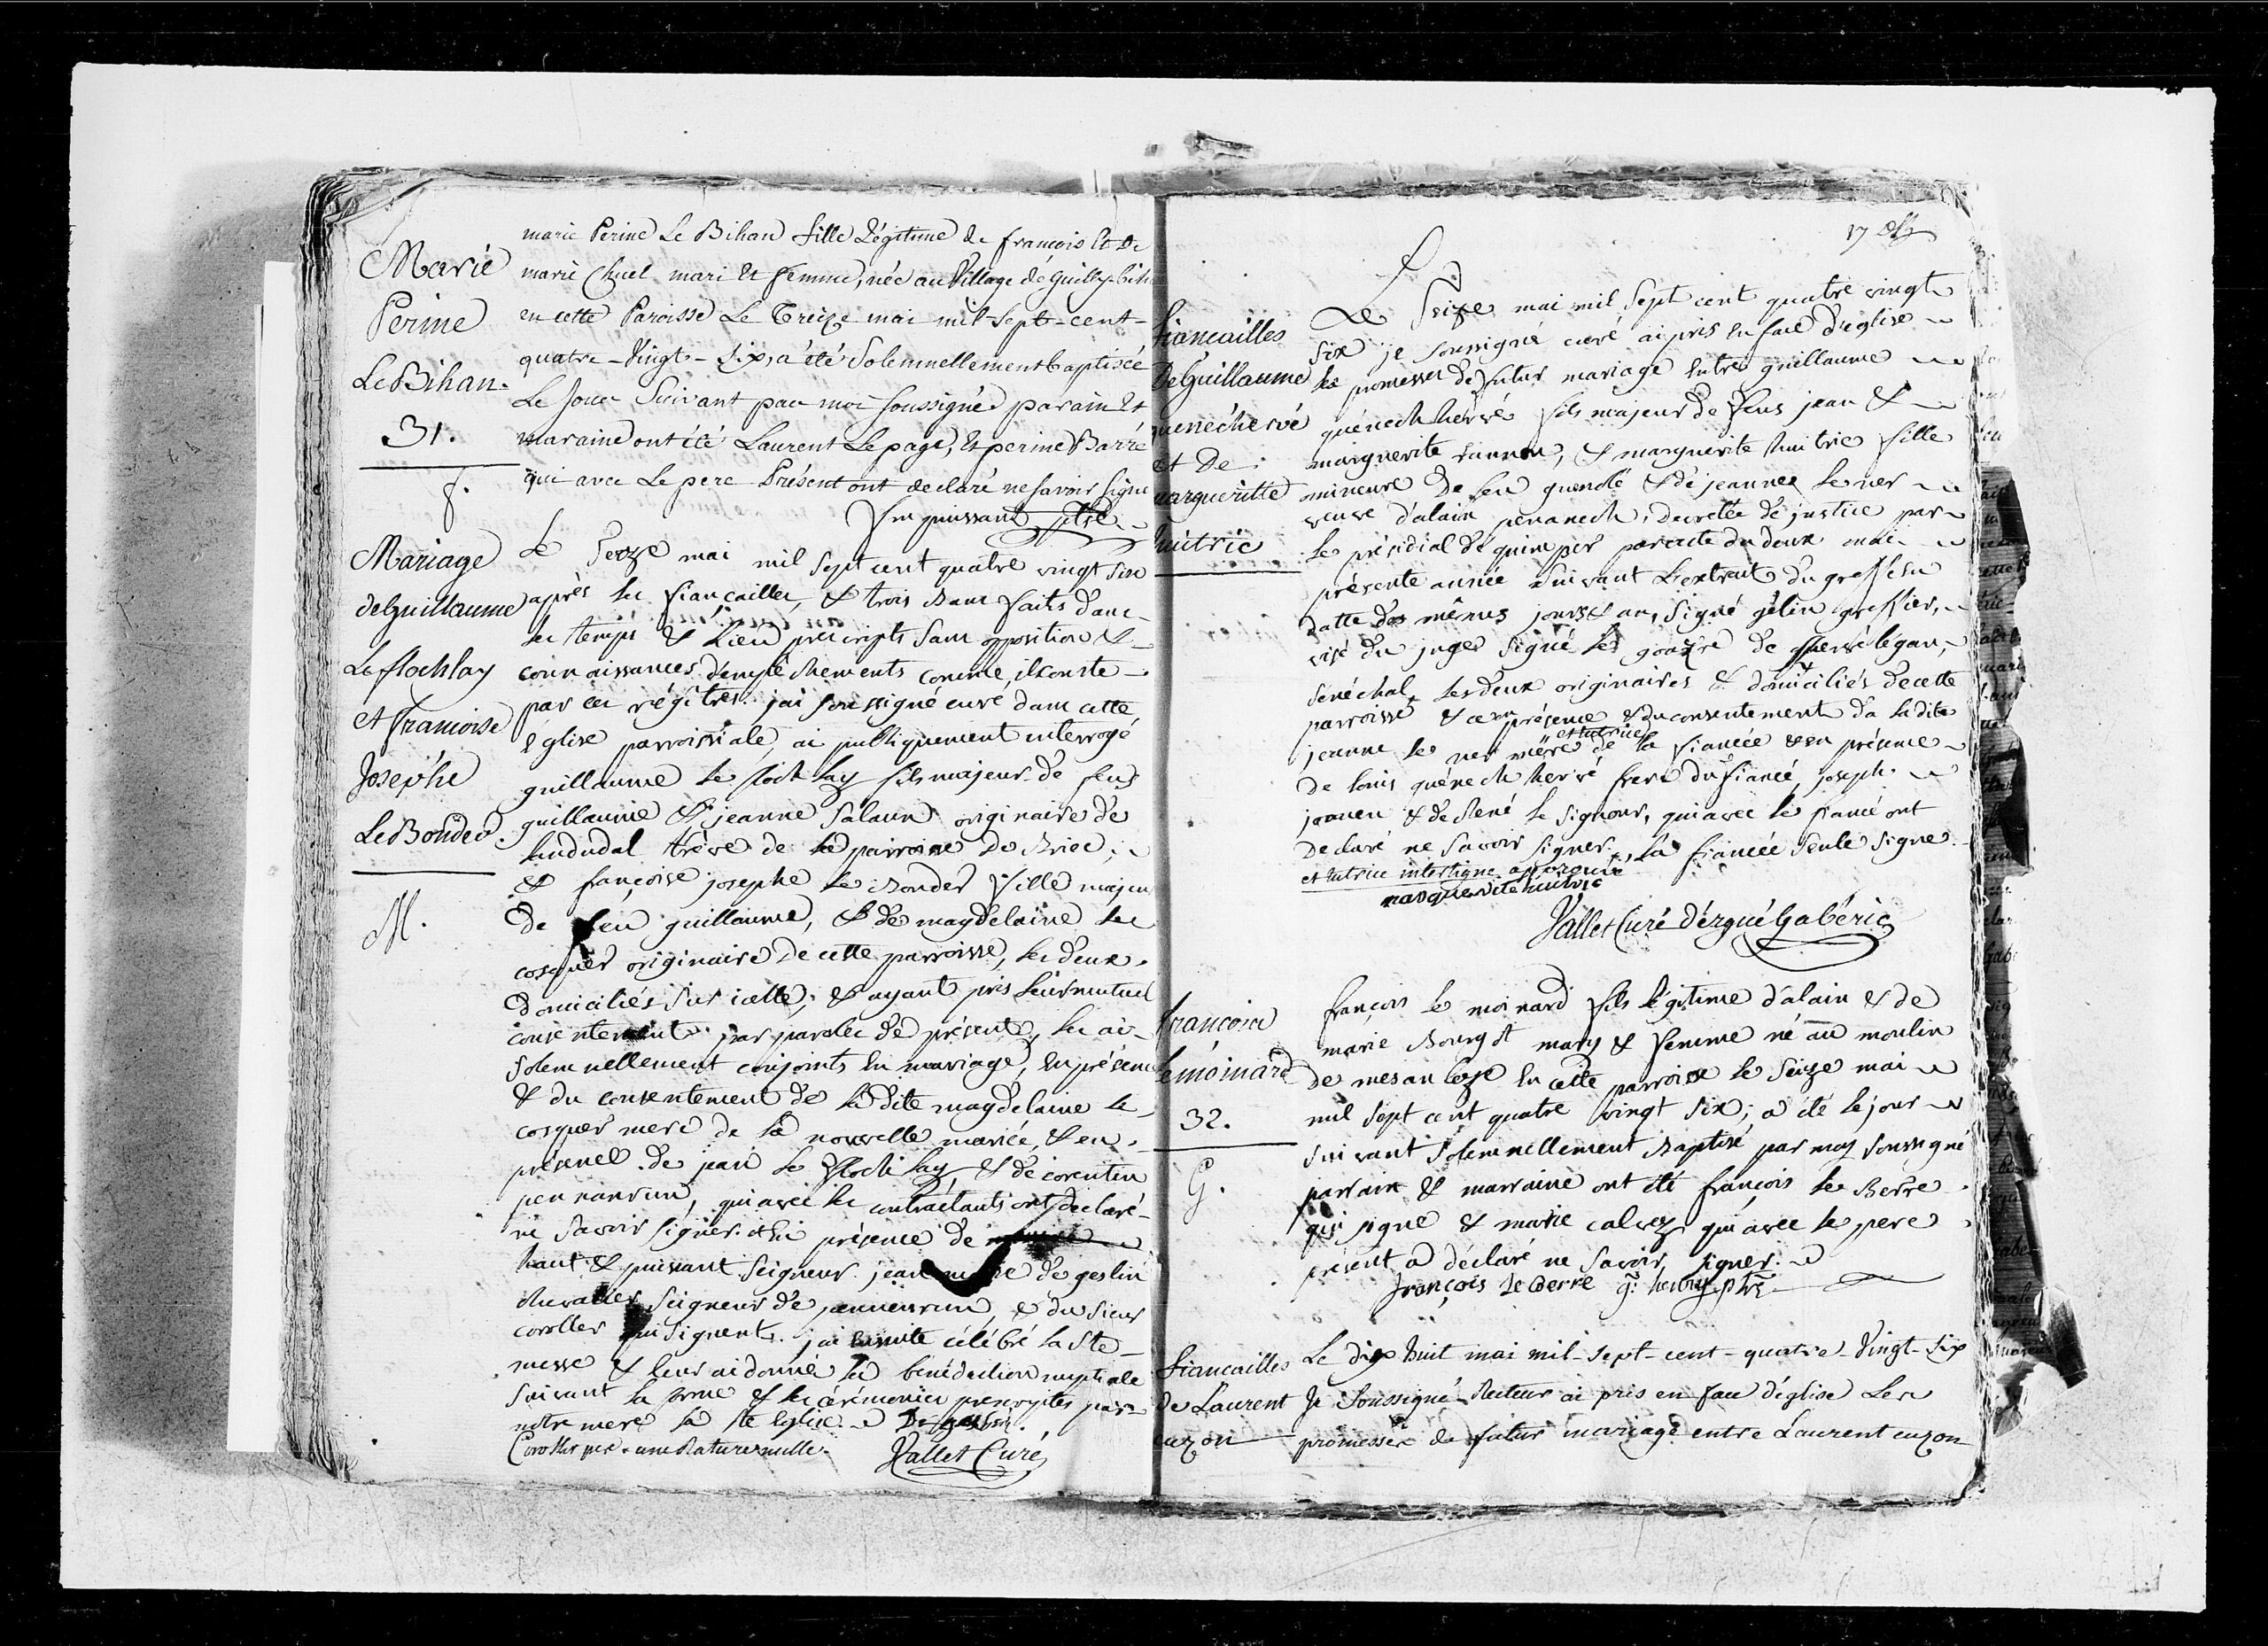 Marie
Perine
Le Bihan.
31.
f.
marie Perine Le Bihan fille Légitime de françois Et De
marie Chuel mari Et femme, née au Village de Guilly-bih
en cette Paroisse Le Treize mai mil-sept-cent-
quatre-Vingt-Six, a été Solemnellement baptisée
Le Jour Suivant par moi soussigné parain Et
maraine ont été Laurent Le page, Et perine Barré
qui avec Le pere Présent ont declaré ne savoir signe
puissant ptre
Mariage
deGuillaume
Le flochlay
et francoise
Josephe
Le Bonder.
M.
Le Seize mai mil sept cent quatre vingt six
après les fiancailles, & trois Bans faits dans
les temps & Lieu prescripts sans opposition &
connaissances d'empêchements comme il conste
par les régitres. j'ai soussigné curé dans cette
Eglise parroissiale, ai publiquement interrogé
guillaume le floch lay fils majeur de feus
guillaume & jeanne Salaun originaire de
Landudal trêve de la parroisse de Briec,
& françoise josephe le Bonder fille majeu
De feu guillaume, & de magdelaine le
cosquer originaire de cette parroisse, les deux
Domiciliés sur icelle; & ayant pris leur mutuel
consentement par paroles de présent, les ai
solemnellement conjoints en mariage, en présence
& du consentement de la dite magdelaine le
cosquer mere de la nouvelle mariée, & en
présence de jean le floch lay, & de corentin
pennanrun, qui avec les contractants ont declaré
ne savoir signer. et en présence de
haut & puissant Seigneur jean marie de geslin
chevalier Seigneur de pennenrun, & du sieur
coroller qui signent. j'ai ensuite célébré la Ste
messe & leur ai donné la bénédiction nuptiale
suivant la forme & les cérémonies prescriptes par
notre mere la ste Eglise. De geslin.
Coroller une Rature nulle.
Vallet Curé
17
fiancailles
DeGuillaume
quenéchervé
et De
marguerite
huitric
Le Seize mai mil Sept cent quatre vingt
six je soussigné curé ai pris en face d'église
les promesses de futur mariage entre guillaume
quénech hervé fils majeur de feus jean &
marguerite, & marguerite huitric fille
mineure De feu guenolé & de jeanne le ner
veuve d'alain penanech, decretée de justice par
le présidial de quimper par acte du deux mai
présente année suivant L'extrait du greffe en
datte des mêmes jours & an, signé gélin greffier,
visé du juge signé le goazre de kervelégan,
senéchal, les deux originaires & domiciliés de cette
parroisse & ce en présence & du consentement de la dite
jeanne le ner mère et tutrice de la fiancée & en présence
de louis quénech hervé frere du fiancé, joseph
jeaouen & de René le signour, qui avec le fiancé ont
Declaré ne savoir signer, la fiancée seule signe.
et tutrice interligne approuvé
marguerite huitric
Vallet Curé d'érgué Gabéric
francois
Lemoinard
32.
G.
françois le moinard fils légitime d'alain & de
marie Bourgot mary & femme né au moulin
de mesanlez en cette parroisse le seize mai
mil sept cent quatre vingt six; a été le jour
suivant solemnellement Baptisé par moy soussigné
parrain & marraine ont été françois le Berre
qui signe & marie calvez, qui avec le pere
présent a déclaré ne savoir signer.
françois Le berre g. ptre
fiancailles
de Laurent
cuzon
Le dix huit mai mil-Sept-cent-quatre-Vingt-Six
Je Soussigné Recteur ai pris en face d'église Les
promesses de futur mariage entre Laurent cuzon